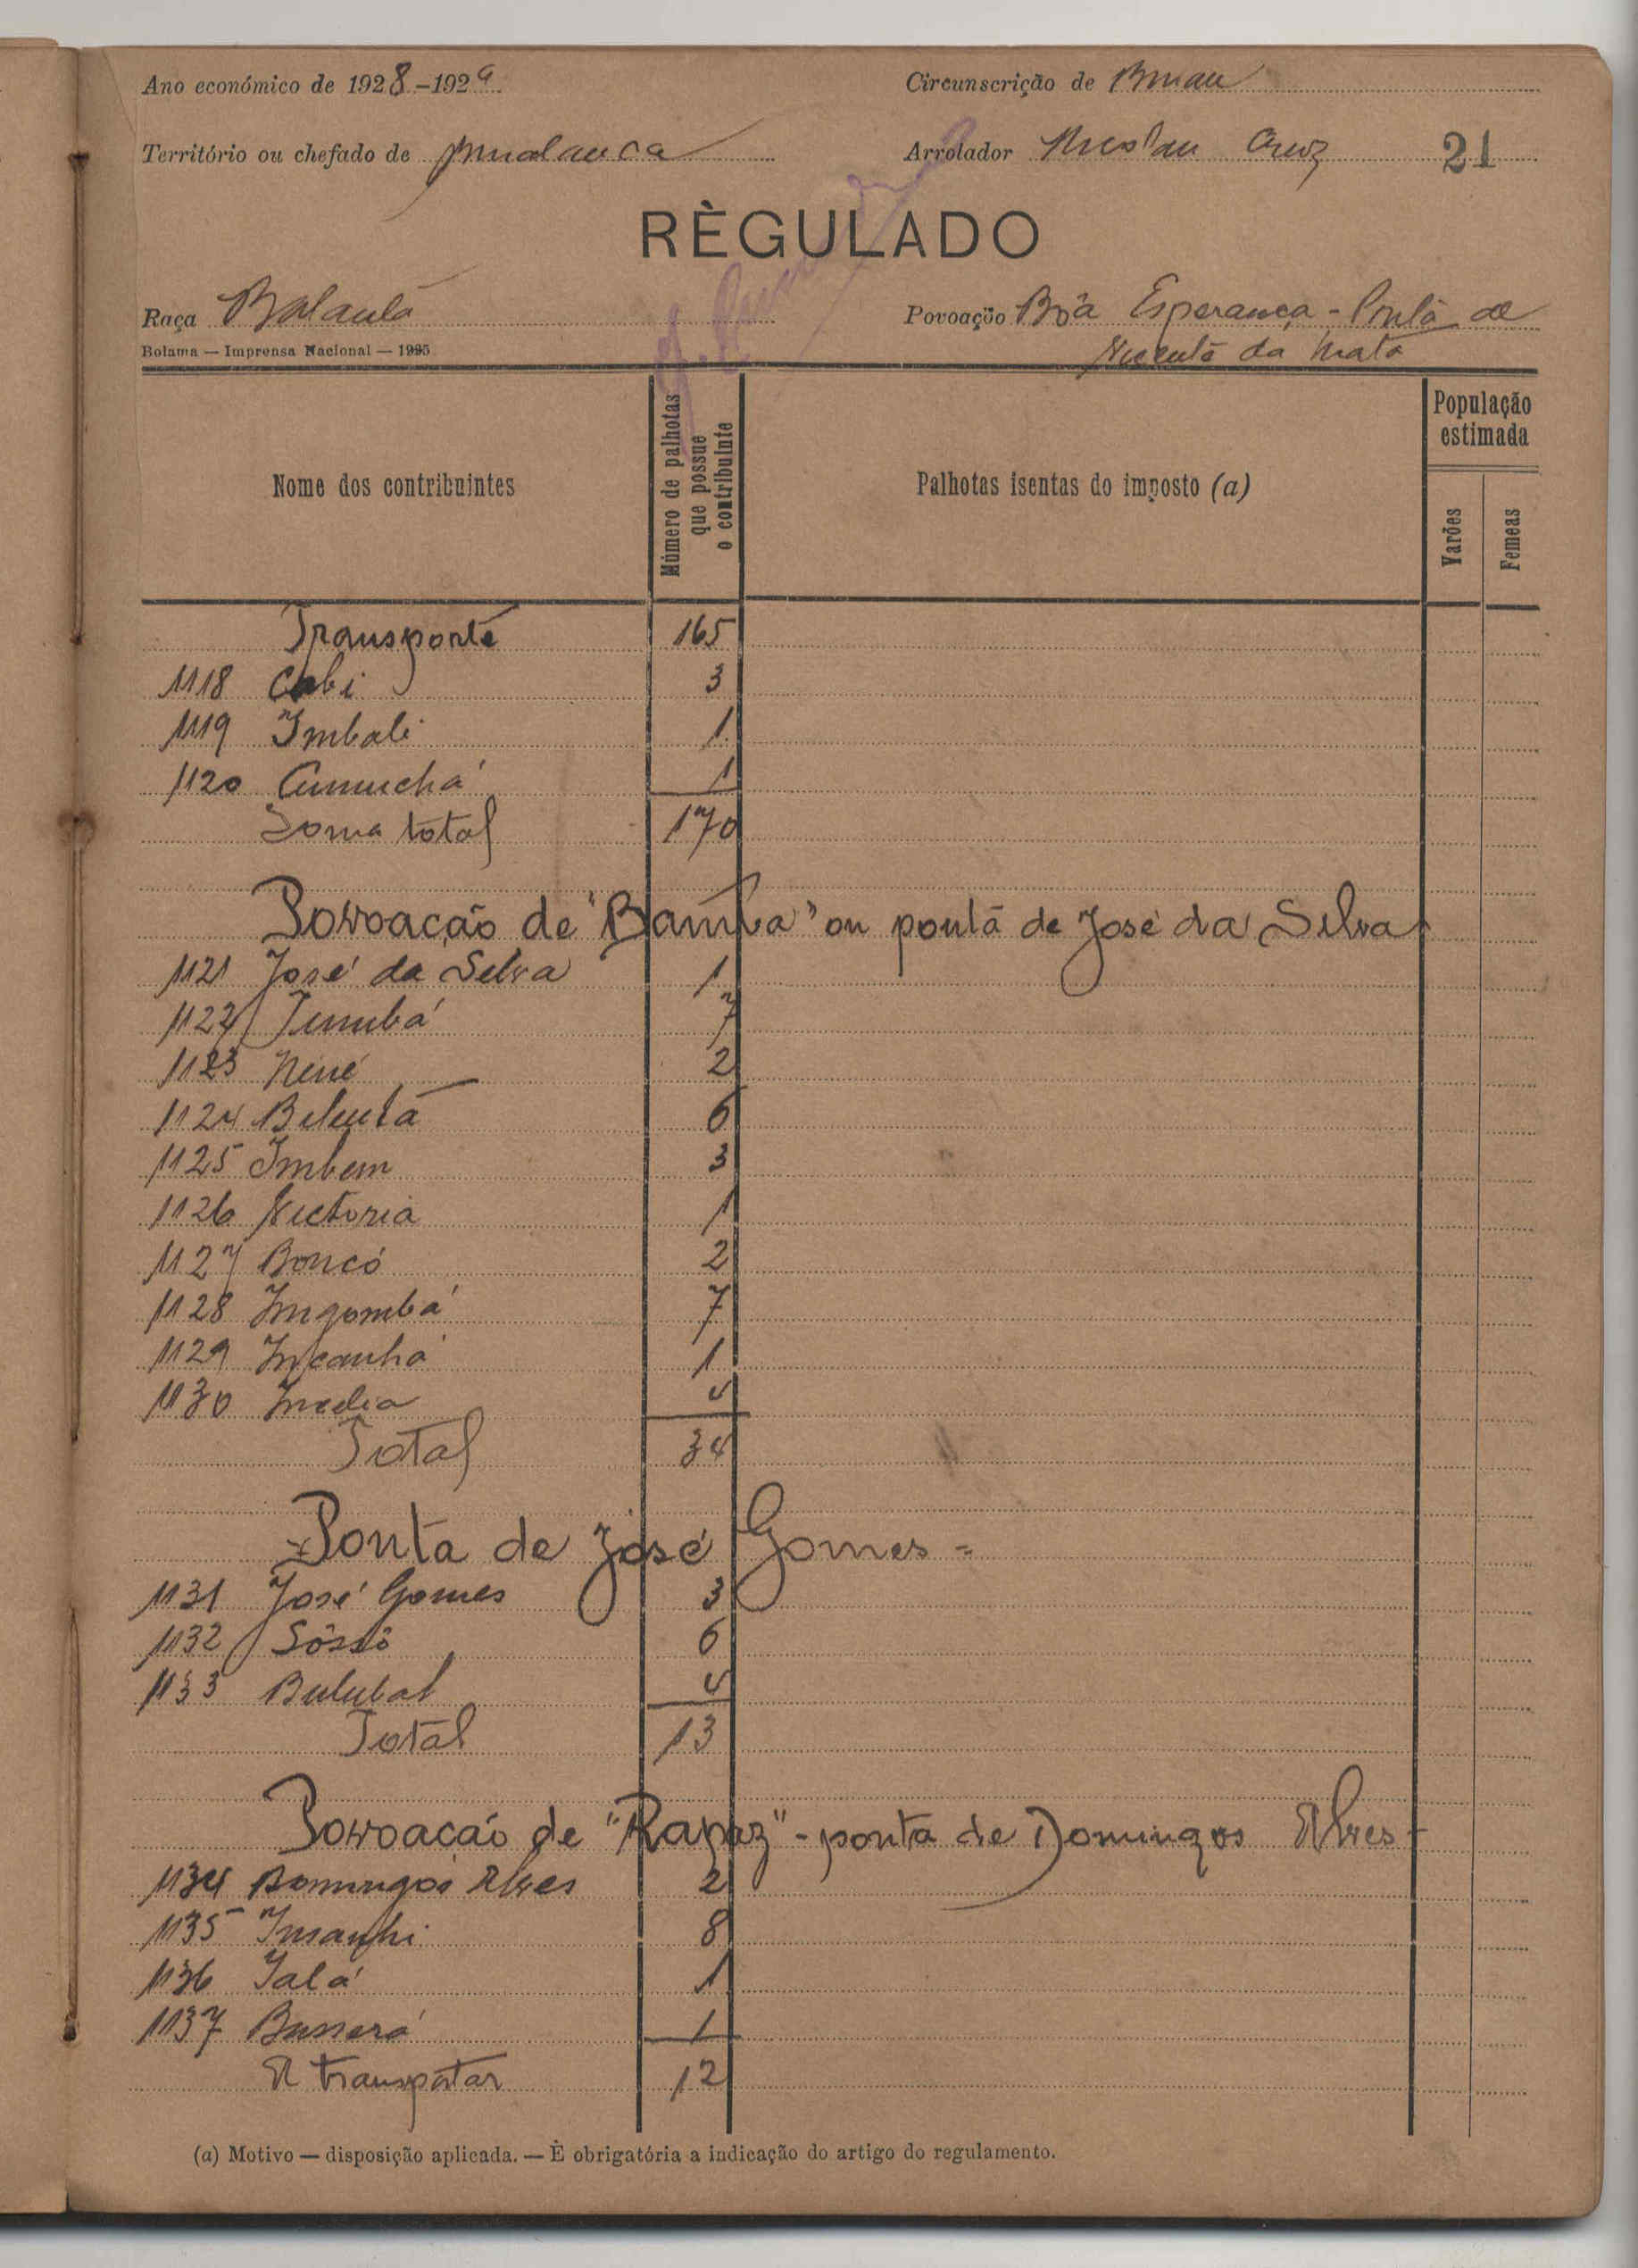 Ano económico de 1928-1929
Circunscrição de
Território ou chefado de
Arrolador Cruz 21
RÈGULADO
Raça Balanta
Povoação Bôa Esperança - Ponta de
Bolama — Imprensa Nacional — 1925
Vicente da Mata
Nome dos contribuintes
Múmero de palhotas
que possue
o contribuinte
Palhotas isentas do imposto (a)
População
estimada
Varões
Femeas
Transporte 165
1118 Cabi 3
1119 Imbali 1
1120 Cumuchá 1
Soma total 170
Povoação de "Bamba" ou ponta de José da Silva
1121 José da Silva 1
1122 7
1123 Néné 2
1124 6
1125 Imbem 3
1126 Victoria 1
1127 Boncó 2
1128 Imgombá 7
1129 Incanhá 1
1130 Imedia 4
Total 34
Ponta de José Gomes =
1131 José Gomes 3
1132 Sôssô 6
1133 Bulubat 4
Total 13
Povoação de "Rapaz" - ponta de Domingos Alves
1134 Domingos Alves 2
1135 8
1136 Ialá 1
1137 1
A transportar 12
(a) Motivo — disposição aplicada. — È obrigatória a indicação do artigo do regulamento.